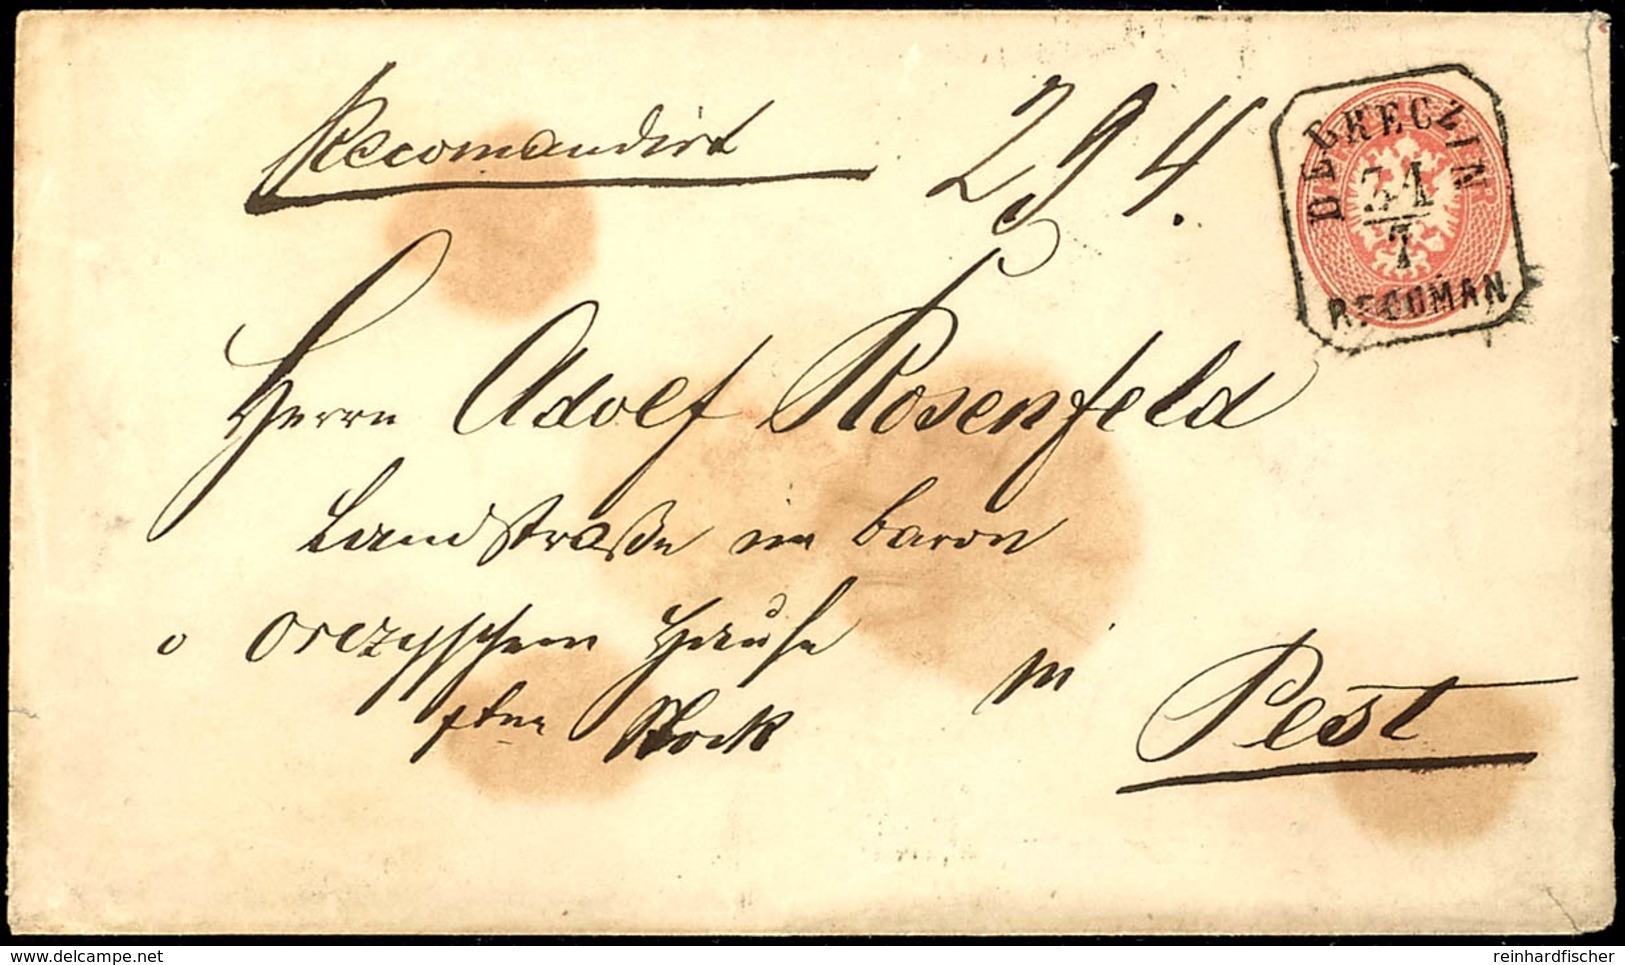 Recomandirt 294.
DEBRECZIN
31
7
RECOMAN
Herrn Adolf Rosenfeld
Landstraße im Baron
Orczyschen Hause
Stock in
Pest
delcampe.net
reinhardfischer